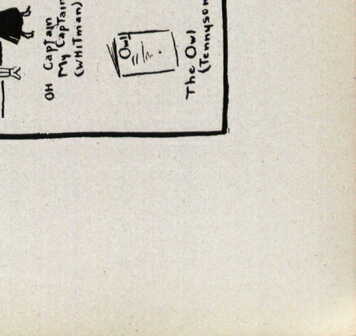 OH Captain
My Captain
(Whitman)
Owl
The Owl
(Tennyson